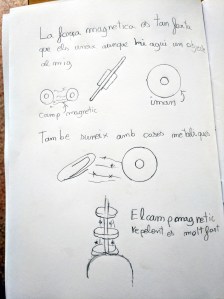 La força magnetica és tan forta
que els uneix aunque hi hagui un objecte
al mig
camp magnetic
imant
També uneix amb coses metàl·liques
El camp magnetic
repelent es molt fort